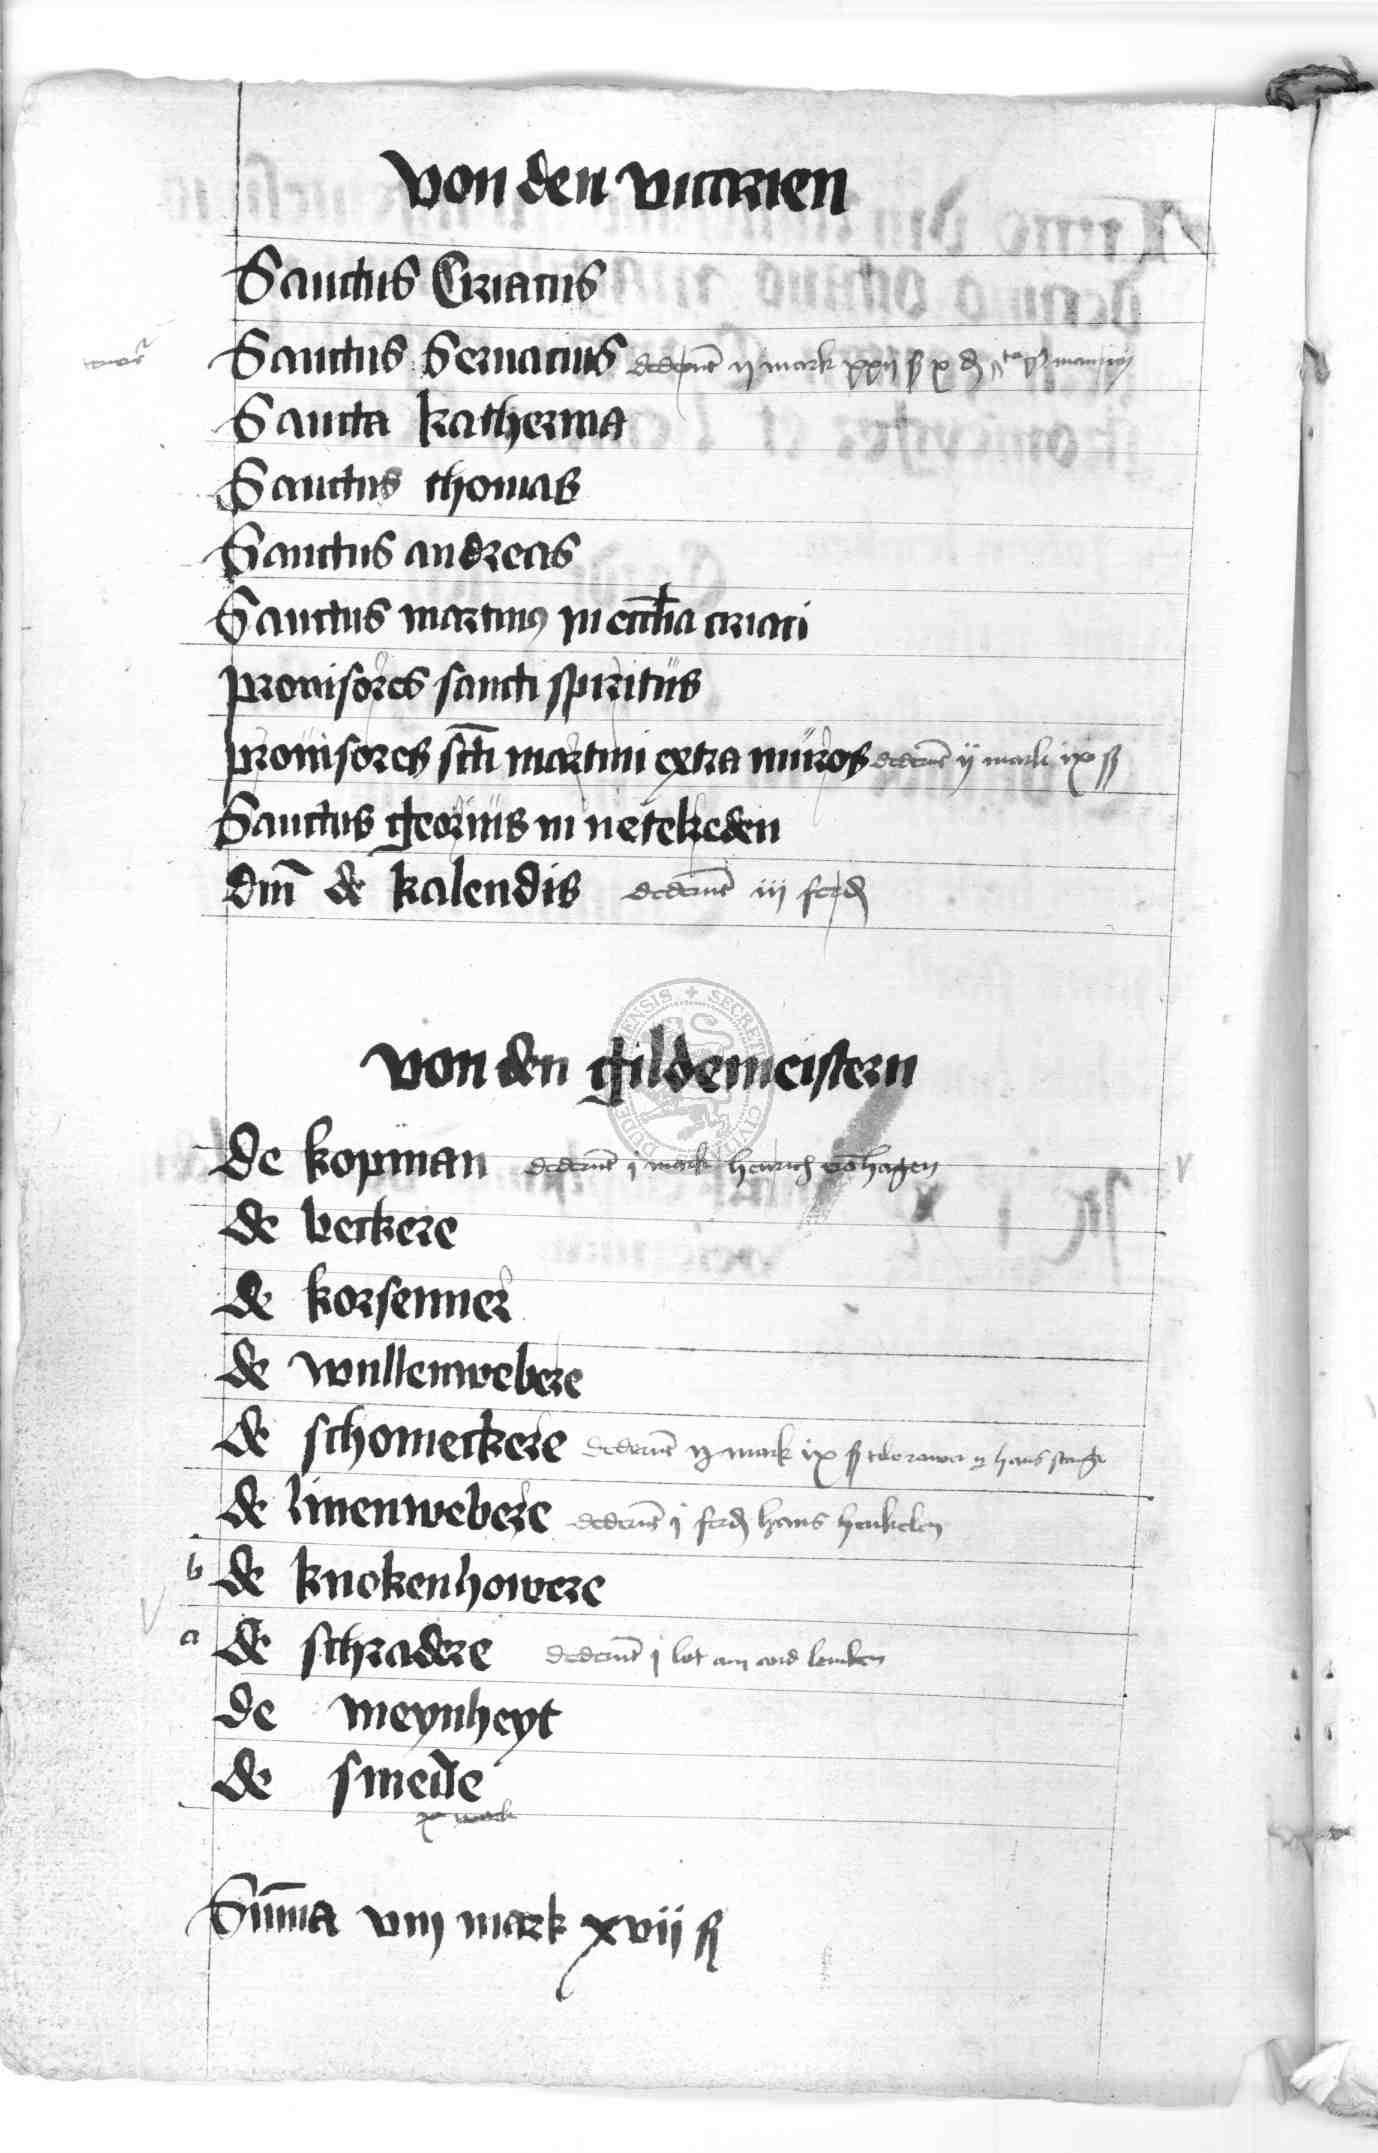 von den vicarien
Sanctus Ciriacus
Sanctus Seruacius dederunt ij mark xxij ß x d
Sancta katherina
Sanctus thomas
Sanctus andreas
Sanctus martinus in ecclia ciriaci
prouisores sancti spiritus
prouisores scti martini extra muros dederunt ij mark ix ß
Sanctus georius in netekeden
dni de kalendis dederunt iij ferd
von den gildemeistern
de kopman dederunt j mark henrich vohagen
de beckere
de korsenner
de wullenwebere
de schomeckere dederunt ij mark ix ß hans
de linenwebere dederunt j ferd hans henkelen
b de knokenhowere
a de schradere dederunt j lot cord lemken
de meynheyt
de smede
x mark
Summa viij mark xvij ß